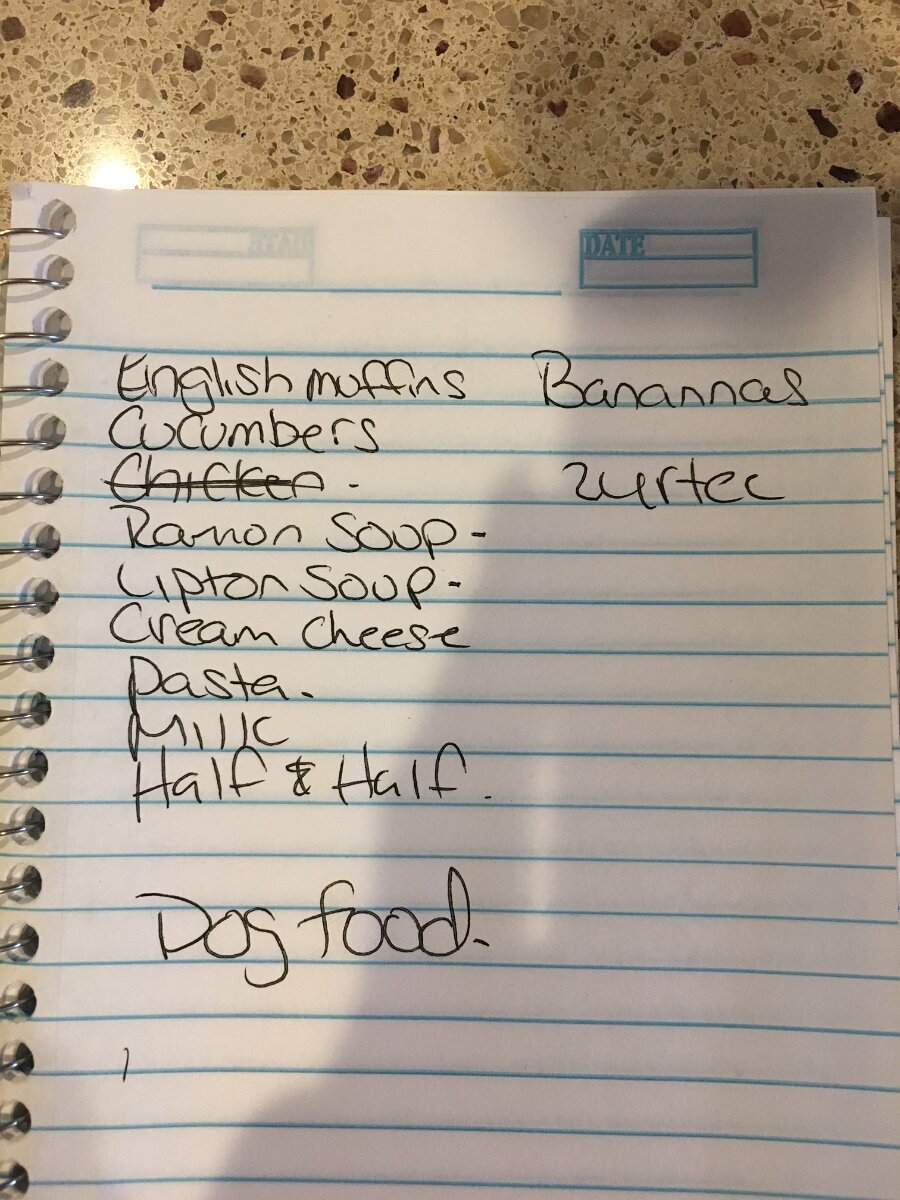 DATE
English muffins
Banannas
Cucumbers
Chicken.
Zyrtec
Ramon Soup-
Lipton Soup-
Cream Cheese
Pasta.
Milk
Half & Half.
Dog food.